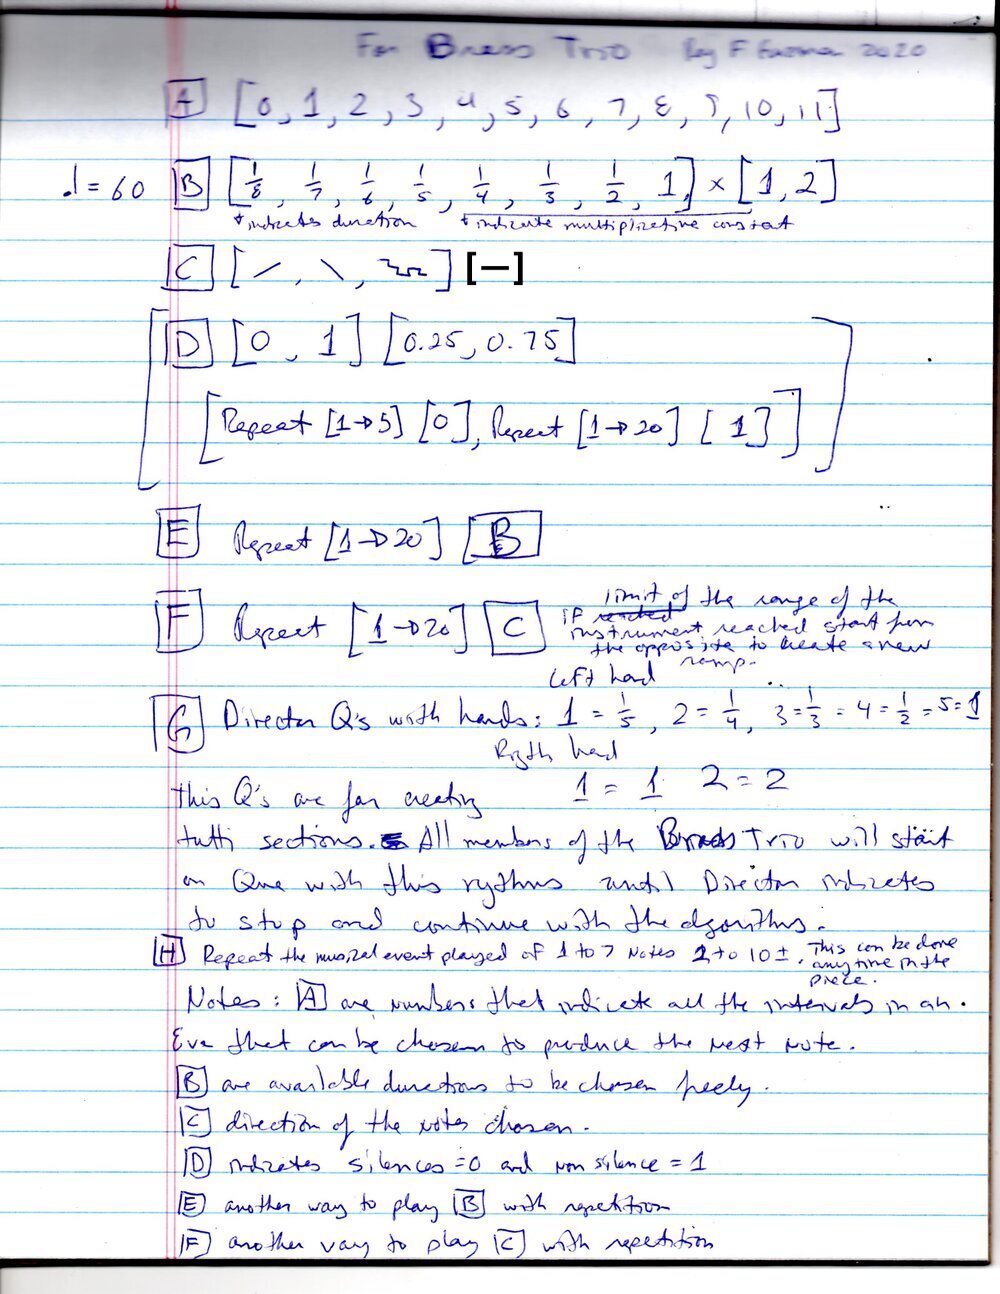 For Brass Trio Roy F Guzman 2020
A [0, 1, 2, 3, 4, 5, 6, 7, 8, 9, 10, 11]
♩ = 60 B [1/8, 1/7, 1/6, 1/5, 1/4, 1/3, 1/2, 1] × [1, 2]
* indicates duration * indicate multiplicative constat
C [ / , \ , ] [—]
D [0, 1] [0.25, 0.75]
[Repeat [1→5] [0], Repeat [1→20] [1]]
E Repeat [1→20] [B]
F Repeat [1→20] C
if limit of the range of the
instrument reached start from
the opposite to create a new
ramp.
Left hand
G Director Q's with hands: 1 = 1/5, 2 = 1/4, 3 = 1/3 = 4 = 1/2 = 5 = 1
Rigth hand
1 = 1 2 = 2
this Q's are for creating
tutti sections. All members of the Brass Trio will start
on Que with this rythms until Director indicates
to stop and continue with the algorithms.
H Repeat the musical event played of 1 to 7 Notes 2 to 10 ±. This can be done
anytime in the
piece.
Notes: A are numbers that indicate all the intervals in an
8ve that can be chosen to produce the next note.
B are available durations to be chosen freely.
C direction of the notes chosen.
D indicates silences = 0 and non silence = 1
E another way to play B with repetition
F another way to play C with repetition